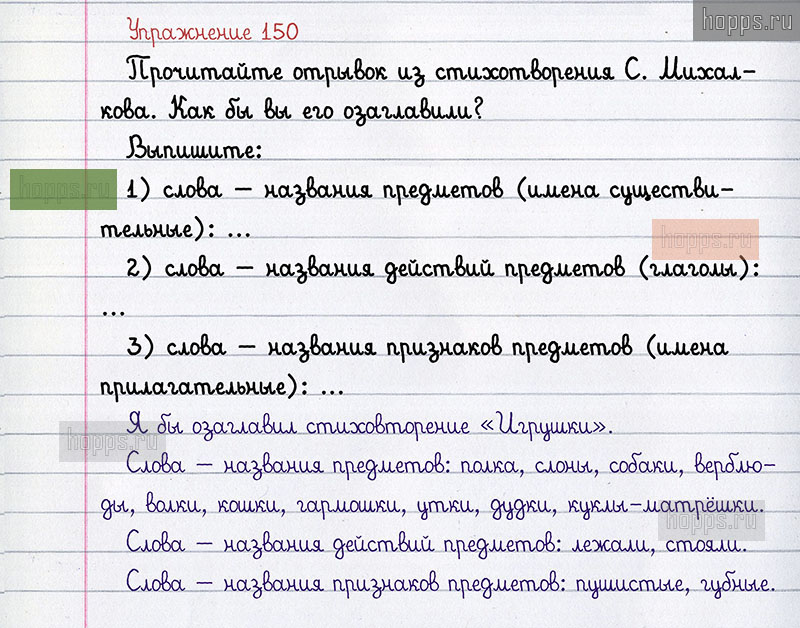 hopps.ru
Упражнение 150
Прочитайте отрывок из стихотворения С. Михал-
кова. Как бы вы его озаглавили?
Выпишите:
hopps.ru
1) слова – названия предметов (имена существи-
тельные): ...
hopps.ru
2) слова – названия действий предметов (глаголы):
...
3) слова – названия признаков предметов (имена
прилагательные): ...
Я бы озаглавил стиховторение «Игрушки».
hopps.ru
Слова – названия предметов: полка, слоны, собаки, верблю-
ды, волки, кошки, гармошки, утки, дудки, куклы-матрёшки.
hopps.ru
Слова – названия действий предметов: лежали, стояли.
Слова – названия признаков предметов: пушистые, губные.